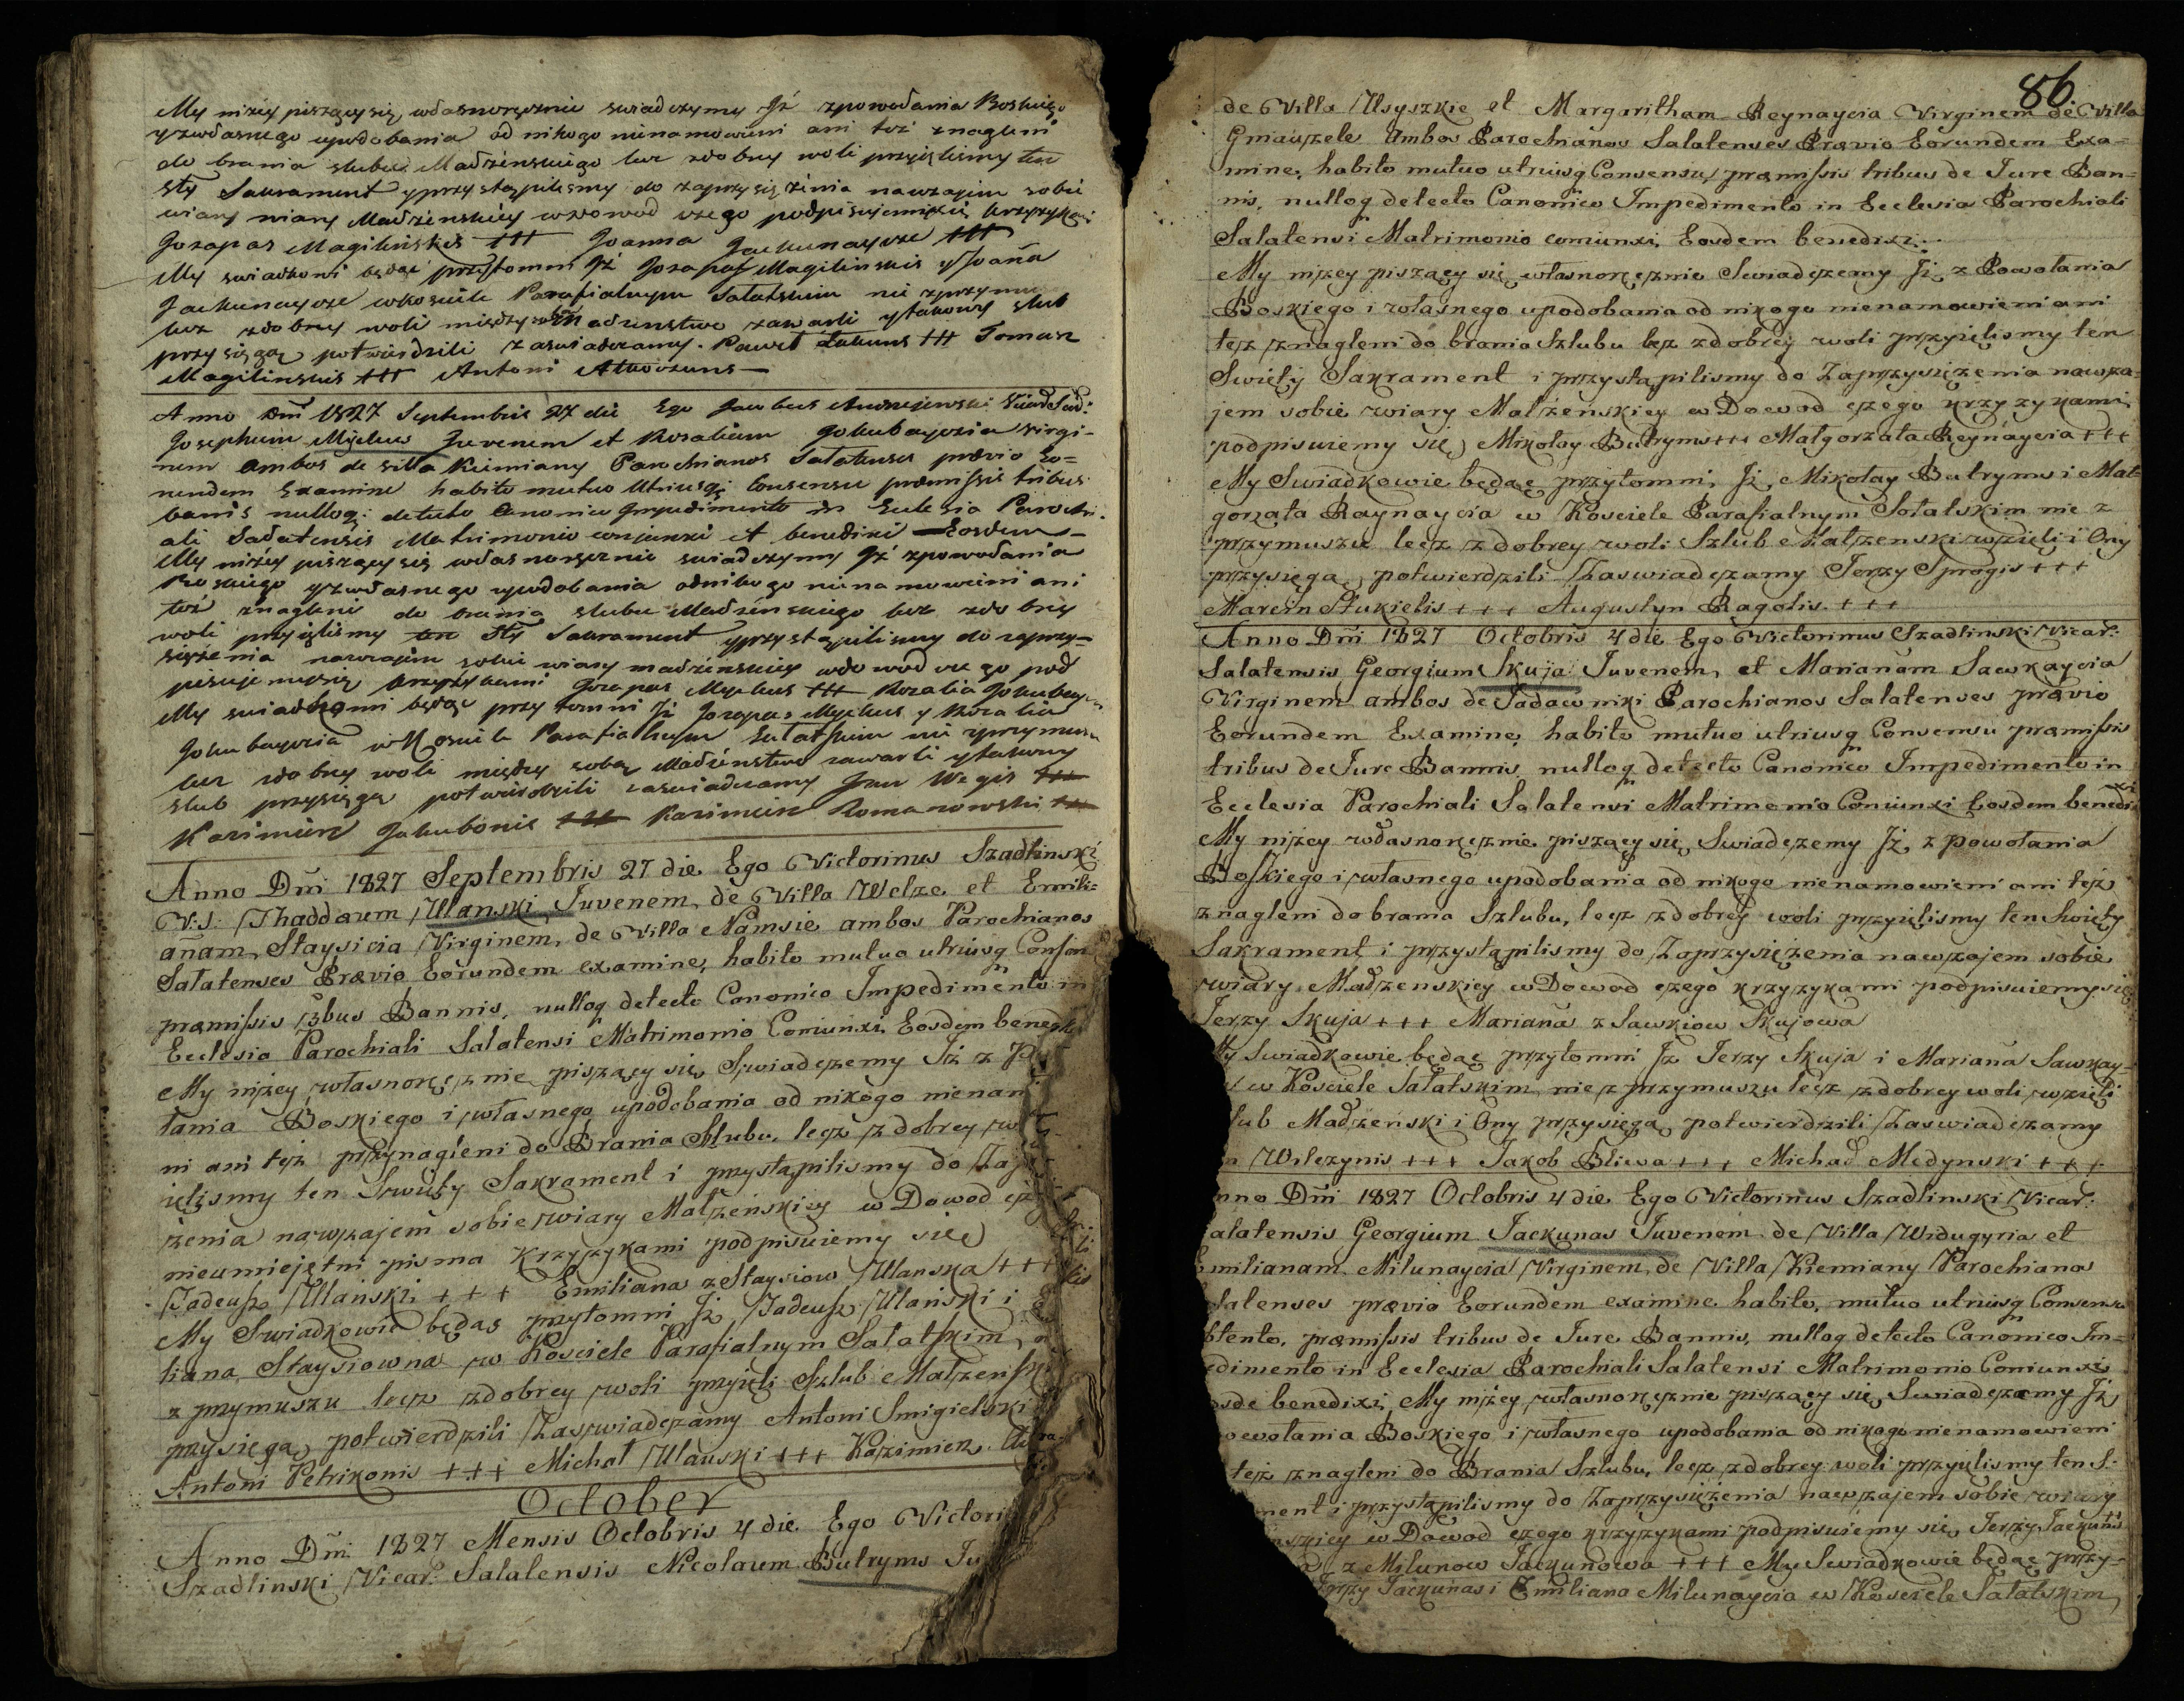 My niżey piszący się własnoręcznie swiadczymy Iż zpowołania Boskiego
yzwłasnego upodobania od nikogo nienamowieni ani też znagleni
do brania slubu Małżenskiego lecz zdobrey woli przyięlismy ten
sty Sakrament yprzystąpilismy do zaprzysiężenia nawzajem sobie
wiary Małżenskiey wdowod czego podpisujemysię krzyzykami
Jozapas Magilinskis +++ Joanna Jackunaycze +++
My swiadkowi będąc przytomni Iż Jozapas Magilinskis y Joaña
Jackunaycze wkosciele Parafialnym Sałatskim nie zprzymu
lecz zdobrey woli między Małżenstwo zawarli ytakowy slub
przysięgą potwierdzili zaswiadczamy. Paweł +++ Tomasz
Magilinskis +++ Antoni
Anno Dm̄ 1827 Septembris 27 die Ego Jacobus Andrzejewski
Josephum Myckus Juvenem et Rosaliam Jokubayczia Virgi-
nem ambos de villa Kiemiany Parochianos Salatenses prævio Eo=
rundem Examine habito mutuo Utriusq; Consensu præmissis tribus
bannis nulloq; detecto Canonico Impedimento in Eclesia Parochi-
ali Sałatensis Matrimonio conjunxi et benedixi Eosdem-
My niżey piszący się własnoręcznie swiadczymy Iż zpowołania
Boskiego yzwłasnego upodobania odnikogo nienamowieni ani
też znagleni do brania slubu Małżenskiego lecz zdobrey
woli przyięlismy ten Sty Sakrament yprzystąpilismy do zaprzy-
siężenia nawzajem sobie wiary małżenskiey wdowod czego pod
pisujemysię krzyzykami Jozapas Myckus +++ Rozalia Jokubay
My swiadkami będąc przytomni Iż Jozapas Myckus y Rozalia
Jokubayczia wKosciele Parafialnym Sałatskim nie zprzymusu
lecz zdobrey woli między sobą Małżenstwo zawarli ytakowy
slub przysięgą potwierdzili zaswiadczamy Jan Wegis +++
Kazimierz Jakubonis +++ Kazimierz Romanowski +++
Anno Dm̄i 1827 Septembris 27 die Ego Victorinus Szadlinski
V:S: Thaddæum Ulanski Juvenem, de Villa Welze et Emili=
añam Staysicia Virginem, de Villa Namsie ambos Parochianos
Sałatenses Prævio Eorundem examine, habito mutuo utriusq Consen
præmissis 3bus Bannis, nulloq detecto Canonico Impedimento in
Ecclesia Parochiali Salatensi Matrimonio Coniunxi Eosdem bened
My niżey własnoręcznie piszący się Swiadczemy Iż z
łania Boskiego i własnego upodobania od nikogo nienam
ni ani też przynagleni do Brania Slubu, lecz z dobrey wo
ięlismy ten Swięty Sakrament i przystąpilismy do Zap
żenia nawzajem sobie wiary Małżeńskiey w Dowod cz
nieumiejętni pisma Krzyzykami podpisuiemy się
Tadeusz Ulański +++ Emiliana zeStaysiow Ulanska +++
My Swiadkowie będąc przytomni Iż Tadeusz Ulański i E
liana Staysiowna w Kosciele Parafialnym Sałatskim
z przymuszu lecz zdobrey woli przyięli Szlub Małżensk
przysięgą potwierdzili Zaswiadczamy Antoni Smigielski
Antoni Petrikonis +++ Michał Ulanski +++ Kazimierz
October
Anno Dm̄i 1827 Mensis Octobris 4 die Ego Victori
Szadlinski Vicar: Salatensis Nicolaum Butryms Ju
86
de Villa Usyszkie et Margaritham Reynaycia Virginem de Villa
Gmauzele Ambos Parochianos Salatenses Prævio Eorundem Exa=
mine, habito mutuo utriusq Consensu, præmissis tribus de Jure Ban=
nis, nulloq detecto Canonico Impedimento in Ecclesia Parochiali
Salatensi Matrimonio coniunxi, Eosdem benedixi.
My niżey piszący się własnoręcznie Swiadczemy Iż z Powołania
Boskiego i własnego upodobania od nikogo nienamowieni ani
też znagleni do brania Szlubu lecz zdobrey woli przyięlismy ten
Swięty Sakrament i przystąpilismy do Zaprzysiężenia nawza-
jem sobie wiary Małżeńskiey w Dowod czego krzyzykami
podpisuiemy się, Mikołay Butryms +++ Małgorzata Reynaycia +++
My Swiadkowie będąc przytomni, Iż, Mikołay Butryms i Mał-
gorzata Raynaycia w Kosciele Parafialnym Sołatskim nie z
przymuszu lecz z dobrey woli Szlub Małżenski wzięli i Ony
przysięgą, potwierdzili Zaswiadczamy Jerzy Sprogis +++
Marcin Stukielis +++ Augustyn Ragolis. +++
Anno Dm̄i 1827 Octobris 4 die Ego Victorinus Szadlinski Vicar:
Salatensis Georgium Skuja Juvenem, et Marianam Sawkaycia
Virginem ambos de Sadawniki Parochianos Salatenses prævio
Eorundem Examine, habito mutuo utriusq Consensu præmissis
tribus de Jure Bannis, nulloq detecto Canonico Impedimento in
Ecclesia Parochiali Salatensi Matrimonio Coniunxi Eosdem benedixi
My niżey własnoręcznie piszący się, Swiadczemy Iż, z powołania
Boskiego i własnego upodobania od nikogo nienamowieni ani też
znagleni do brania Szlubu, lecz zdobrey woli przyięlismy ten Swięty
Sakrament i przystąpilismy do Zaprzysiężenia nawzajem sobie
wiary Małżenskiey w Dowod czego krzyzykami podpisuiemy się
Jerzy Skuja +++ Mariana z Sawkiow Skujowa
My Swiadkowie będąc przytomni Iż Jerzy Skuja i Mariana Sawkay-
w Kosciele Sałatskim nie z przymuszu lecz zdobrey woli, wzięli
lub Małżenski i Ony przysięgą potwierdzili Zaswiadczamy
n Wilczynis +++ Jakob Bliwa +++ Michał Medynski +++
nno Dm̄i 1827 Octobris 4 die Ego Victorinus Szadlinski Vicar:
alatensis Georgium Jackunas Juvenem de Villa Widugyria et
milianam Milunaycia Virginem, de Villa Kiemiany Parochianos
latenses prævio Eorundem examine habito, mutuo utriusq Consensu
btento, præmissis tribus de Jure Bannis, nulloq detecto Canonico Im=
edimento in Ecclesia Parochiali Salatensi Matrimonio Coniunxi
osde benedixi, My niżey własnoręcznie piszący się, Swiadczamy Iż
owołania Boskiego i własnego upodobania od nikogo nienamowieni
też znagleni do Brania Szlubu, lecz zdobrey woli przyięlismy ten S:
ment i przystąpilismy do Zaprzysiężenia nawzajem sobie wiary
nskiey w Dowod czego krzyzykami podpisuiemy się Jerzy Jackunas
z Milunow Jackunowa +++ My Swiadkowie będąc przy-
Jerzy Jackunas i Emiliana Milunaycia w Kosciele Sałatskim,